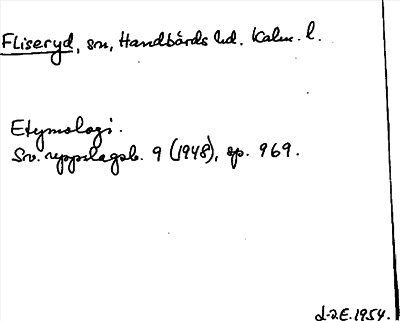 Fliseryd, sn, Handbörds hd. Kalm. l.
Etymologi.
Sv. uppslagsb. 9 (1948), sp. 969.
J-2E. 1954.